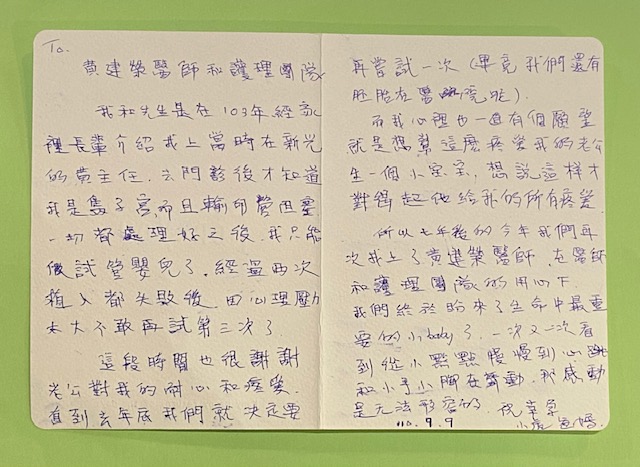 To.
黃建榮醫師和護理團隊
我和先生是在103年經家
裡長輩介紹找上當時在新光
的黃主任. 去門診後才知道
我是隻子宮而且輸卵管阻塞
一切都處理好之後. 我只能
做試管嬰兒了. 經過兩次
植入都失敗後 因心理壓力
太大不敢再試第三次了
這段時間也很謝謝
老公對我的耐心和疼愛.
直到去年底我們就決定要
再嘗試一次 (畢竟我們還有
胚胎在醫院呢).
而我心裡也一直有個願望
就是想幫這麼疼愛我的老公
生一個小寶寶, 想說這樣才
對得起他給我的所有疼愛.
所以七年後的今年我們再
次找上了黃建榮醫師. 在醫師
和護理團隊的用心下
我們終於盼來了生命中最重
要的小baby了. 一次又一次看
到從小點點慢慢到心跳
和小手小腳在舞動. 那感動
是無法形容的. 祝幸孕
110. 9. 9
小 媽.